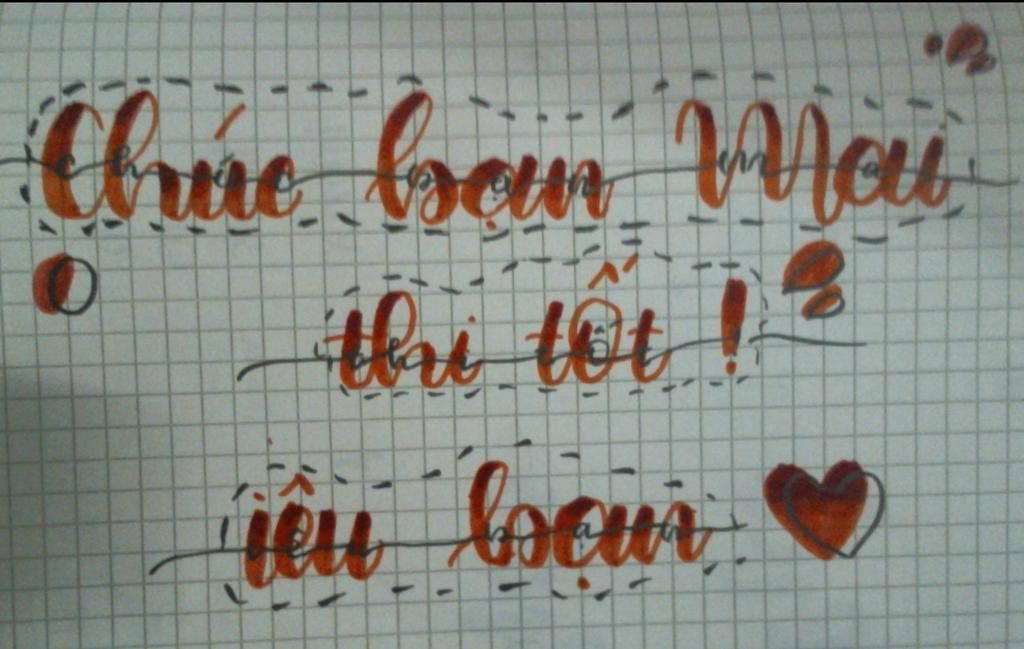 Chúc bạn Mai
thi tốt !
iêu bạn